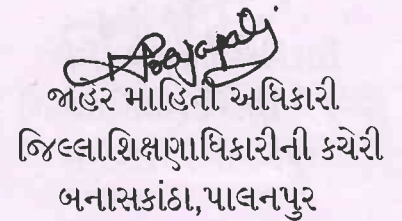 જાહેર માહિતી અધિકારી
જિલ્લાશિક્ષણાધિકારીની કચેરી
બનાસકાંઠા,પાલનપુર